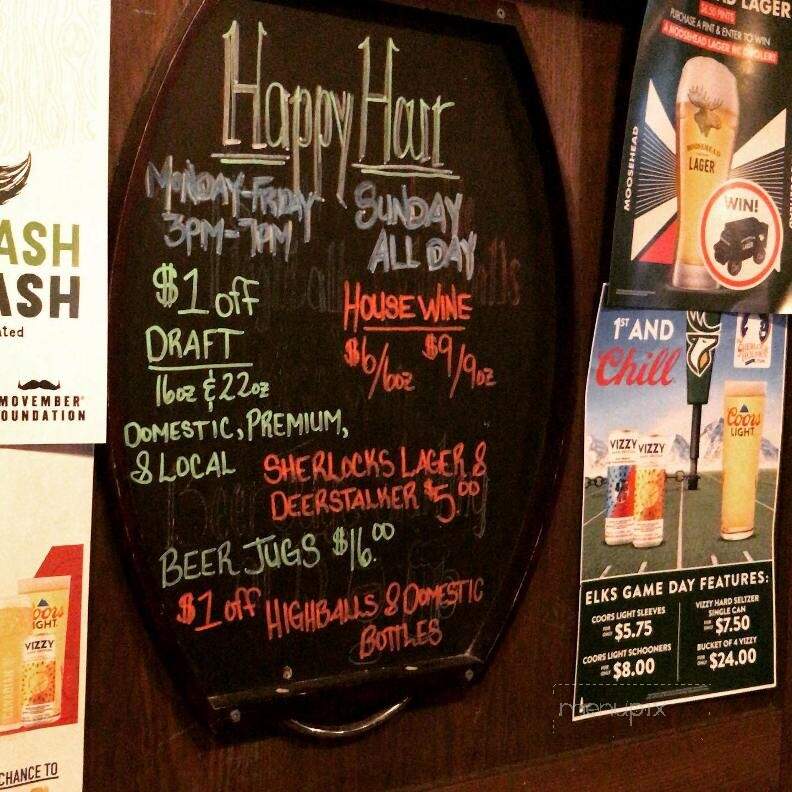 Happy Hour
MONDAY-FRIDAY
3PM-7PM
SUNDAY
ALL DAY
$1 off
DRAFT
16oz & 22oz
DOMESTIC, PREMIUM,
& LOCAL
HOUSE WINE
$6/6oz $9/9oz
SHERLOCKS LAGER &
DEERSTALKER $5.00
BEER JUGS $16.00
$1 off HIGHBALLS & DOMESTIC
BOTTLES
ASH
ASH
MOVEMBER
FOUNDATION
Coors
LIGHT
VIZZY
CHANCE TO
LAGER
$6.50 PINTS
PURCHASE A PINT & ENTER TO WIN
A MOOSEHEAD LAGER
MOOSEHEAD
MOOSEHEAD
LAGER
WIN!
1ST AND
Chill
VIZZY
VIZZY
Coors
LIGHT
ELKS GAME DAY FEATURES:
COORS LIGHT SLEEVES
FOR ONLY $5.75
COORS LIGHT SCHOONERS
FOR ONLY $8.00
VIZZY HARD SELTZER
SINGLE CAN
FOR ONLY $7.50
BUCKET OF 4 VIZZY
FOR ONLY $24.00
menupix